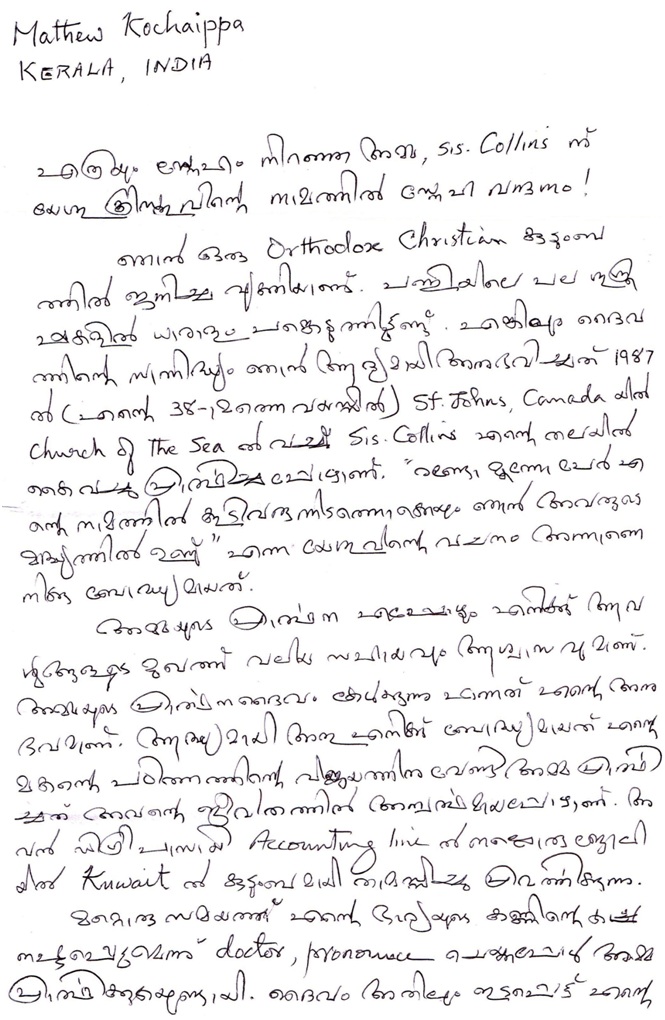 Mathew Kochaippa
KERALA, INDIA
എത്രയും സ്നേഹം നിറഞ്ഞ അമ്മ, Sis. Collins ന്
യേശു ക്രിസ്തുവിന്റെ നാമത്തിൽ സ്നേഹ വന്ദനം!
ഞാൻ ഒരു Orthodox Christian കുടുംബ
ത്തിൽ ജനിച്ച വ്യക്തിയാണ്. പള്ളിയിലെ പല ശുശ്രൂ
ഷകളിൽ ധാരാളം പങ്കെടുത്തിട്ടുണ്ട്. എങ്കിലും ദൈവ
ത്തിന്റെ സാന്നിദ്ധ്യം ഞാൻ ആദ്യമായി അനുഭവിച്ചത് 1987
ൽ (എന്റെ 38-ാമത്തെ വയസ്സിൽ) St. Johns, Canada യിൽ
Church of The Sea ൽ വച്ച് Sis. Collins എന്റെ തലയിൽ
കൈ വച്ചു പ്രാർത്ഥിച്ചപ്പോഴാണ്. "രണ്ടോ മൂന്നോ പേർ എ
ന്റെ നാമത്തിൽ കൂടിവരുന്നിടത്തൊക്കെയും ഞാൻ അവരുടെ
മദ്ധ്യത്തിൽ ഉണ്ട്" എന്ന യേശുവിന്റെ വചനം അന്നാണെ
നിക്കു ബോദ്ധ്യമായത്.
അമ്മയുടെ പ്രാർത്ഥന എപ്പോഴും എനിക്ക് ആവ
ശ്യങ്ങളുടെ മുഖത്ത് വലിയ സഹായവും ആശ്വാസവുമാണ്.
അമ്മയുടെ പ്രാർത്ഥന ദൈവം കേൾക്കുന്നു എന്നത് എന്റെ അനു
ഭവമാണ്. ആദ്യമായി അതു എനിക്ക് ബോദ്ധ്യമായത് എന്റെ
മകന്റെ പഠിത്തത്തിന്റെ വിജയത്തിനു വേണ്ടി അമ്മ പ്രാർത്ഥി
ച്ചത് അവന്റെ ജീവിതത്തിൽ അന്വർത്ഥമായപ്പോഴാണ്. അ
വൻ ഡിഗ്രി പാസായി Accounting line ൽ നല്ലൊരു ജോലി
യിൽ Kuwait ൽ കുടുംബമായി താമസിച്ചു പ്രവർത്തിക്കുന്നു.
മറ്റൊരു സമയത്ത് എന്റെ ഭാര്യയുടെ കണ്ണിന്റെ കാഴ്ച
നഷ്ടപ്പെടുമെന്ന് doctor, pronounce ചെയ്തപ്പോൾ അമ്മ
പ്രാർത്ഥിക്കുകയുണ്ടായി. ദൈവം അതിലും ഇടപെട്ട് എന്റെ